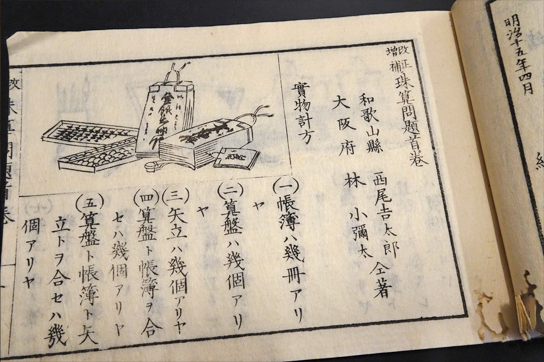 明治十五年四月
改正
増補
珠算問題首卷
和歌山縣 西尾吉太郎
大阪府 林 小彌太
仝著
實物計方
(一)帳簿ハ幾冊アリ
ヤ
(二)筭盤ハ幾個アリ
ヤ
(三)矢立ハ幾個アリヤ
(四)筭盤ト帳簿ヲ合
セハ幾個アリヤ
(五)筭盤ト帳簿ト矢
立トヲ合セハ幾
個アリヤ
珠算問題首卷